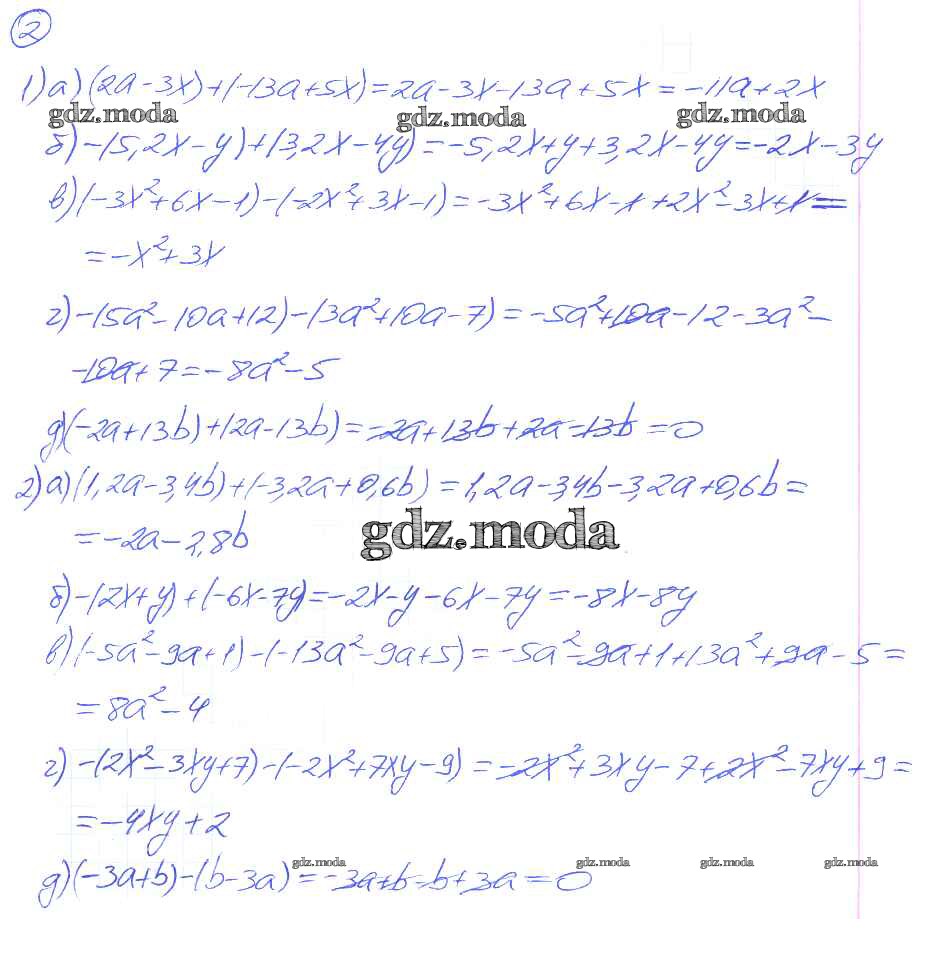 2
1) а) (2a-3x)+(-13a+5x)=2a-3x-13a+5x=-11a+2x
gdz.moda gdz.moda gdz.moda
б) -(5,2x-y)+(3,2x-4y)=-5,2x+y+3,2x-4y=-2x-3y
в) (-3x²+6x-1)-(-2x²+3x-1)=-3x²+6x-1+2x²-3x+1=
=-x²+3x
г) -(5a²-10a+12)-(3a²+10a-7)=-5a²+10a-12-3a²-
-10a+7=-8a²-5
д) (-2a+13b)+(2a-13b)=-2a+13b+2a-13b=0
2) а) (1,2a-3,4b)+(-3,2a+0,6b)=1,2a-3,4b-3,2a+0,6b=
=-2a-2,8b
gdz.moda
б) -(2x+y)+(-6x-7y)=-2x-y-6x-7y=-8x-8y
в) (-5a²-9a+1)-(-13a²-9a+5)=-5a²-9a+1+13a²+9a-5=
=8a²-4
г) -(2x²-3xy+7)-(-2x²+7xy-9)=-2x²+3xy-7+2x²-7xy+9=
=-4xy+2
gdz.moda gdz.moda gdz.moda gdz.moda
д) (-3a+b)-(b-3a)=-3a+b-b+3a=0